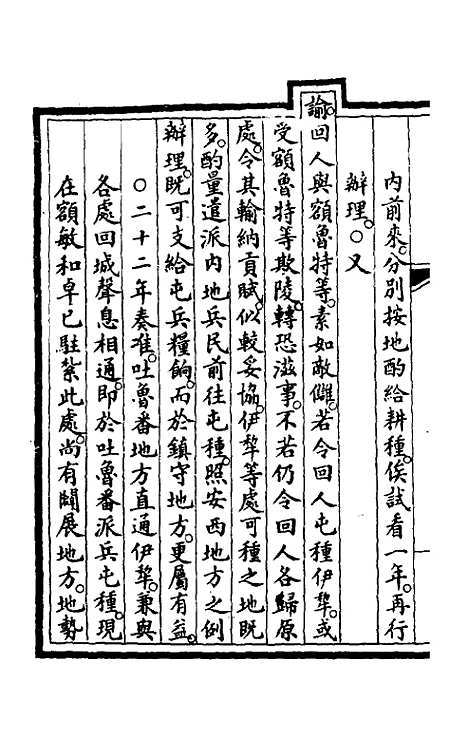 內前來。分別按地酌給耕種。俟試看一年。再行
辦理。○又
諭。回人與額魯特等。素如敵讎。若令回人屯種伊犂。或
受額魯特等欺陵。轉恐滋事。不若仍令回人各歸原
處。令其輸納貢賦。似較妥協。伊犂等處可種之地既
多。酌量遣派內地兵民前往屯種。照安西地方之例
辦理。既可支給屯兵糧餉。而於鎮守地方。更屬有益。
○二十二年奏准。吐魯番地方直通伊犂。兼與
各處回城聲息相通。即於吐魯番派兵屯種。現
在額敏和卓已駐紮此處。尚有闢展地方。地勢